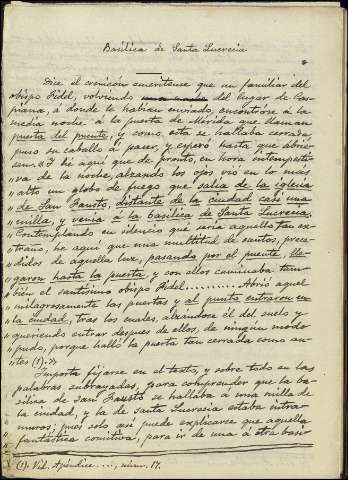 Basílica de Santa Lucrecia
"Dice el cronicón emeritense que un familiar del
"obispo Fidel, volviendo del lugar de Cas-
"piana, á donde le habían enviado, encontróse á la
"media noche á la puerta de Mérida que llaman
"puerta del puente, y como esta se hallaba cerrada,
"puso su caballo á pacer, y esperó hasta que abrie-
"sen. «I hé aquí que de pronto, en hora intempesti-
"va de la noche, alzando los ojos vió en lo más
"alto un globo de fuego que salía de la iglesia
"de San Fausto, distante de la ciudad casi una
"milla, y venía á la basílica de Santa Lucrecia.
"Contemplando en silencio qué sería aquello tan ex-
"traño, he aquí que una multitud de santos, prece-
"didos de aquella luz, pasando por el puente, lle-
"garon hasta la puerta, y con ellos caminaba tam-
"bién el santísimo obispo Fidel......... Abrió aquel
"milagrosamente las puertas y al punto entraron en
"la ciudad, tras los cuales, alzándose él del suelo y
"queriendo entrar despues de ellos, de ningún modo
"pudo, porque halló la puerta tan cerrada como an-
"tes (1).»
Importa fijarse en el texto, y sobre todo en las
palabras subrayadas, para comprender que la ba-
sílica de San Fausto se hallaba á una milla de
la ciudad, y la de Santa Lucrecia estaba intra-
muros; pues solo así puede explicarse que aquella
fantástica comitiva, para ir de una á otra basí-
(1). Vid. Apéndice...., núm. 17.